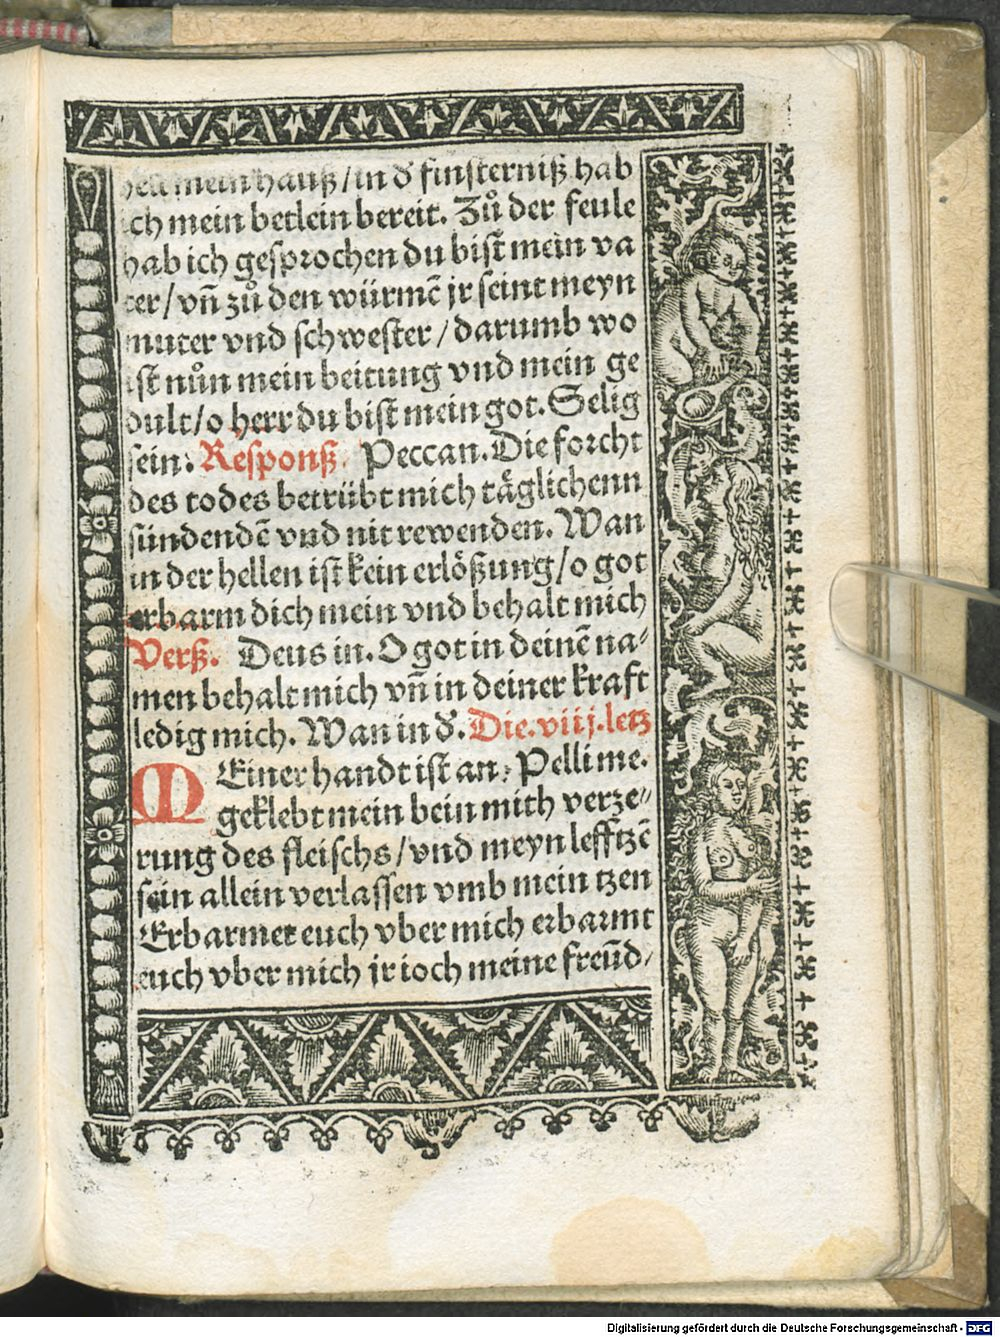 hell mein hauß / in d̕ finsterniß hab
ich mein betlein bereit. Zů der feule
hab ich gesprochen du bist mein va
ter / vn̄ zů den würmē jr seint meyn
muter vnd schwester / darumb wo
ist nůn mein beitung vnd mein ge
dult / o herr du bist mein got. Selig
sein. Responß. Peccan. Die forcht
des todes betrübt mich täglichenn
sündendē vnd nit rewenden. Wan
in der hellen ist kein erlößung / o got
erbarm dich mein vnd behalt mich
Verß. Deus in. O got in deinē na⸗
men behalt mich vn̄ in deiner kraft
ledig mich. Wan in d̕. Die. viij. letz
MEiner handt ist an. Pelli me.
geklebt mein bein mith verze⸗
rung des fleischs / vnd meyn lefftzē
sein allein verlassen vmb mein tzen
Erbarmet euch vber mich erbarmt
euch vber mich jr ioch meine freūd /
Digitalisierung gefördert durch die Deutsche Forschungsgemeinschaft - DFG